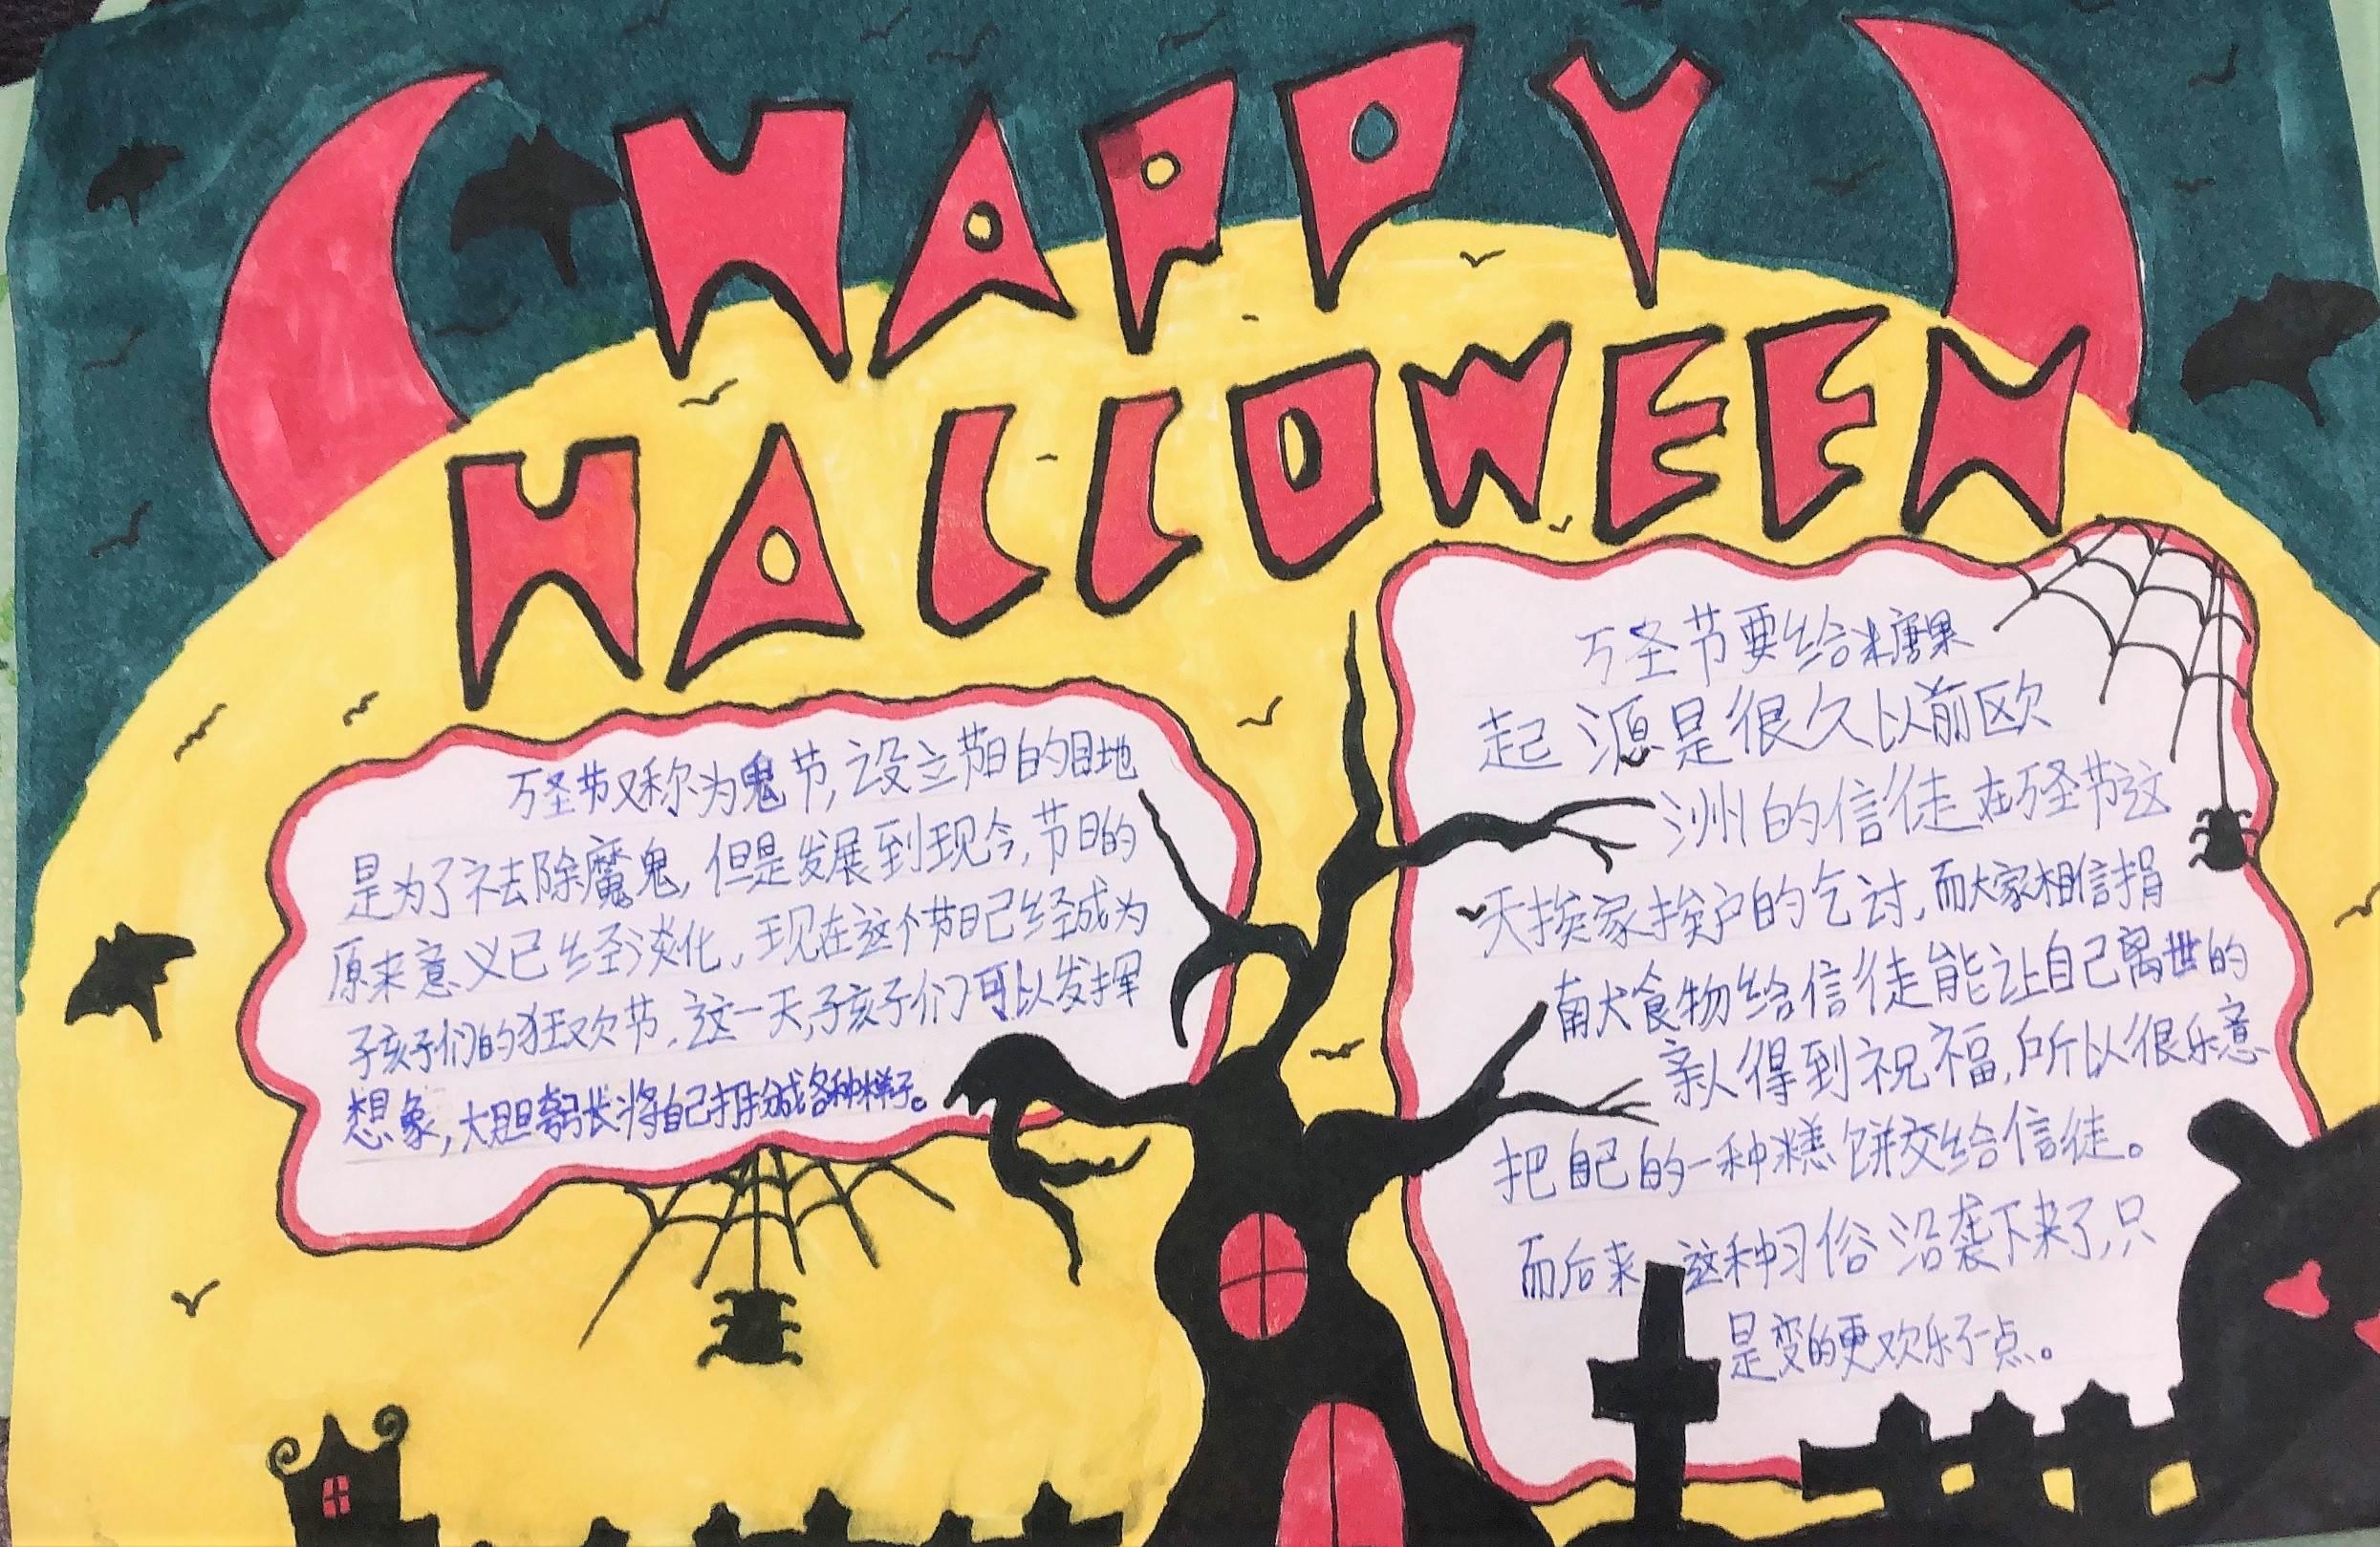 HAPPY
HALLOWEEN
万圣节又称为鬼节,设立节日的目地
是为了祛除魔鬼,但是发展到现今,节日的
原来意义已经淡化,现在这个节日已经成为
孩子们的狂欢节,这一天,孩子们可以发挥
想象,大胆的将自己打扮成各种样子。
万圣节要给糖果
起源是很久以前欧
洲的信徒在万圣节这
天挨家挨户的乞讨,而大家相信捐
献食物给信徒能让自己离世的
亲人得到祝福,所以很乐意
把自己的一种糕饼交给信徒。
而后来这种习俗沿袭下来了,只
是变的更欢乐了一点。